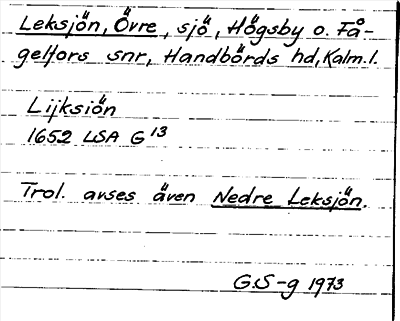 Leksjön, Övre, sjö, Högsby o. Få-
gelfors snr, Handbörds hd, Kalm. l.
Lijksiön
1652 LSA G 13
Trol. avses även Nedre Leksjön.
G.S-g 1973